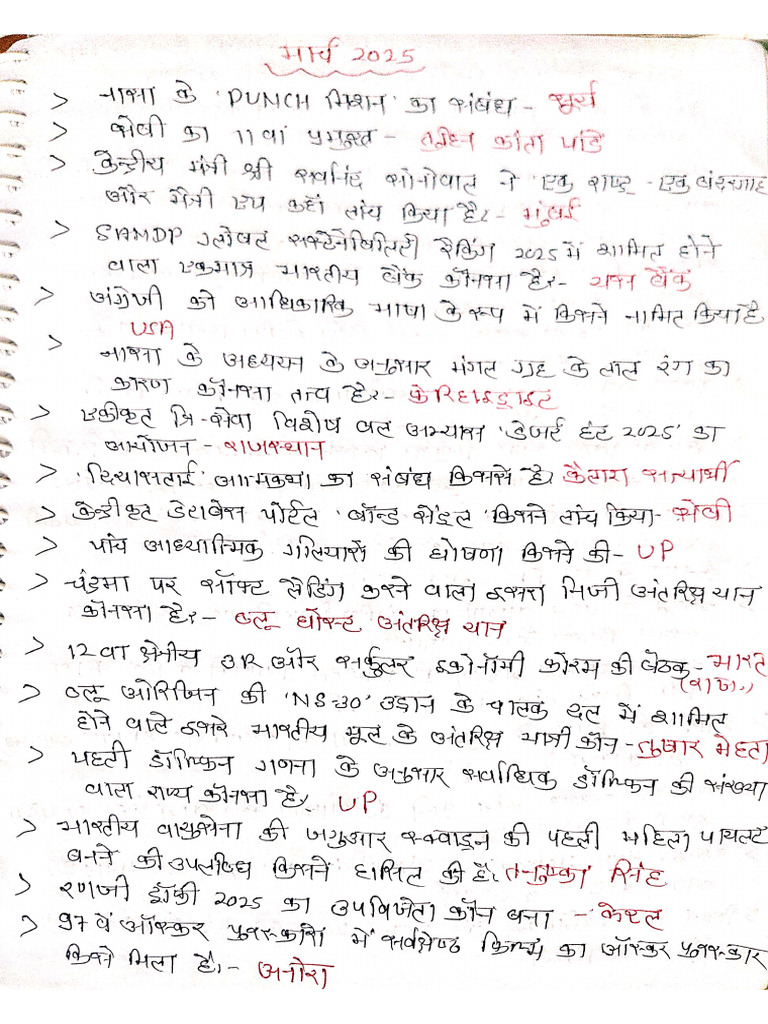 मार्च 2025
> नासा के 'PUNCH मिशन' का संबंध - सूर्य
> सेबी का 11वां प्रमुख - तुहिन कांता पांडे
> केन्द्रीय मंत्री श्री सर्वानंद सोनोवाल ने एक राष्ट्र - एक बंदरगाह
और मैत्री एप कहां लांच किया है:- मुंबई
> S&MDP ग्लोबल सस्टेनेबिलिटी रैंकिंग 2025 में शामिल होने
वाला एकमात्र भारतीय बैंक कौनसा है:- यस बैंक
> अंग्रेजी को आधिकारिक भाषा के रूप में किसने नामित किया है
USA
> नासा के अध्ययन के अनुसार मंगल ग्रह के लाल रंग का
कारण कौनसा तत्व है:- फेरिहाइड्राइट
> एकीकृत त्रि-सेवा विशेष बल अभ्यास 'डेजर्ट हंट 2025' का
आयोजन - राजस्थान
> 'दियासलाई' आत्मकथा का संबंध किससे है। कैलाश सत्यार्थी
> केन्द्रीकृत डेटाबेस पोर्टल 'बॉन्ड सेंट्रल' किसने लांच किया - सेबी
> पांच आध्यात्मिक गलियारों की घोषणा किसने की - UP
> चंद्रमा पर सॉफ्ट लैंडिंग करने वाला दूसरा निजी अंतरिक्ष यान
कौनसा है:- ब्लू घोस्ट अंतरिक्ष यान
> 12वां क्षेत्रीय 3R और सर्कुलर इकोनॉमी फोरम की बैठक - भारत
(राज.)
> ब्लू ओरिजिन की 'NS-30' उड़ान के चालक दल में शामिल
होने वाले दूसरे भारतीय मूल के अंतरिक्ष यात्री कौन - तुषार मेहता
> पहली डॉल्फिन गणना के अनुसार सर्वाधिक डॉल्फिन की संख्या
वाला राज्य कौनसा है। UP
> भारतीय वायुसेना की जगुआर स्क्वाड्रन की पहली महिला पायलट
बनने की उपलब्धि किसने हासिल की है। तनुष्का सिंह
> रणजी ट्रॉफी 2025 का उपविजेता कौन बना - केरल
> 97वें ऑस्कर पुरस्कारों में सर्वश्रेष्ठ फिल्म का ऑस्कर पुरस्कार
किसे मिला है:- अनोरा